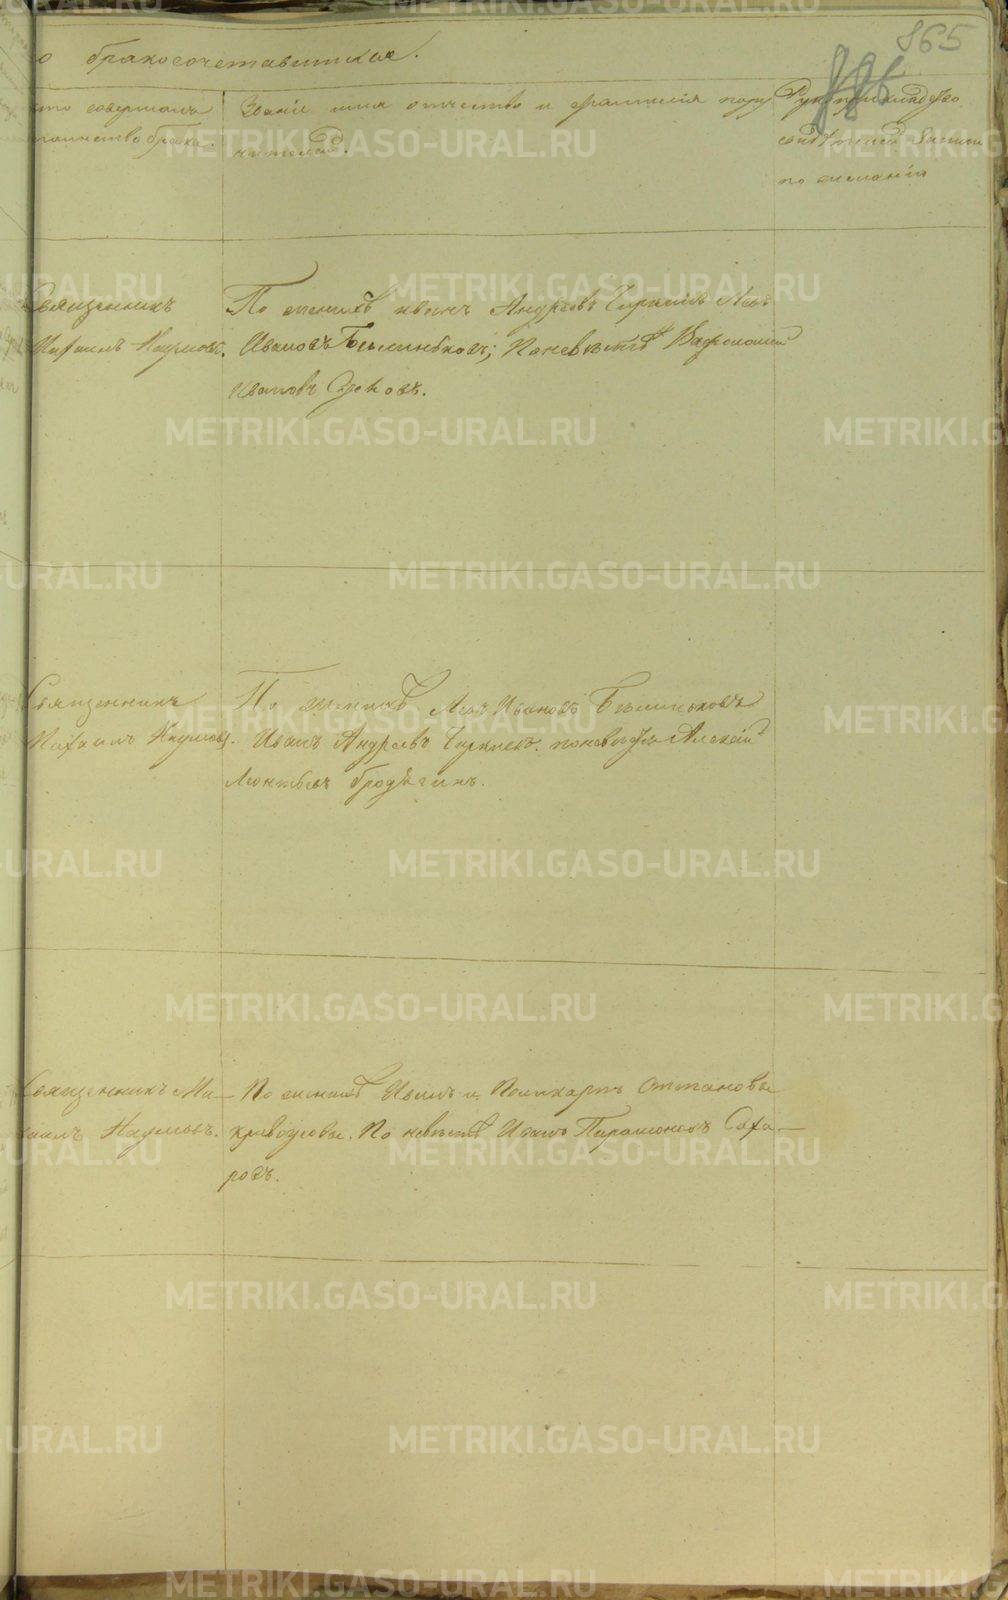 865
о бракосочетавшихся.
кто совершалъ
таинство брака.
Званіе имя отчество и фамилія пору
чителей.
Рукоприкладство
свидѣтелей записи
по желанію
Священникъ
Михаилъ Наумовъ.
По женихѣ Иванъ Андреевъ Левъ
Ивановъ Бѣлиньковъ; По невѣстѣ Варфоломей
Ивановъ
Священникъ
Михаилъ Наумовъ.
По женихѣ Левъ Ивановъ Бѣлиньковъ
Иванъ Андреевъ по невѣстѣ Алексѣй
Леонтьевъ Бродягинъ.
Священникъ Ми-
хаилъ Наумовъ.
По женихѣ Иванъ и Поликарпъ Степановы
Кривоусовы. По невѣстѣ Иванъ Парамоновъ Саха-
ровъ.
METRIKI.GASO-URAL.RU